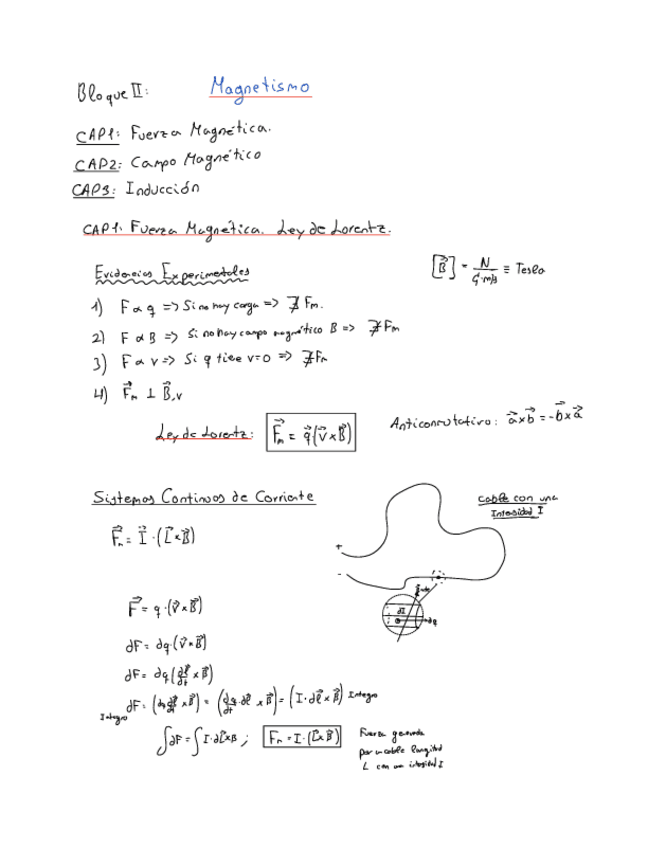 Bloque II: Magnetismo
CAP1: Fuerza Magnética.
CAP2: Campo Magnético
CAP3: Inducción
CAP1: Fuerza Magnética. Ley de Lorentz.
Evidencias Experimentales
[B⃗] = N/(C·m/s) ≡ Tesla
1) F ∝ q => Si no hay carga => ∄ Fm.
2) F ∝ B => Si no hay campo magnético B => ∄ Fm
3) F ∝ v => Si q tiene v=0 => ∄ Fm
4) F⃗m ⊥ B⃗,v
Ley de Lorentz: F⃗m = q⃗(v⃗×B⃗)
Anticonmutativo: a⃗×b⃗ = -b⃗×a⃗
Sistemas Continuos de Corriente
cable con una
Intensidad I
F⃗m = I⃗·(L⃗×B⃗)
+
-
dI
dq
F⃗ = q·(v⃗×B⃗)
dF = dq·(v⃗×B⃗)
dF = dq(dl⃗/dt × B⃗)
dF = (dq dl⃗/dt × B⃗) = (dq/dt·dl⃗ × B⃗) = (I·dl⃗×B⃗) Integro
Integro
∫dF = ∫I·dL⃗×B ; Fm = I·(L⃗×B⃗)
Fuerza generada
por un cable longitud
L con un intesidad I